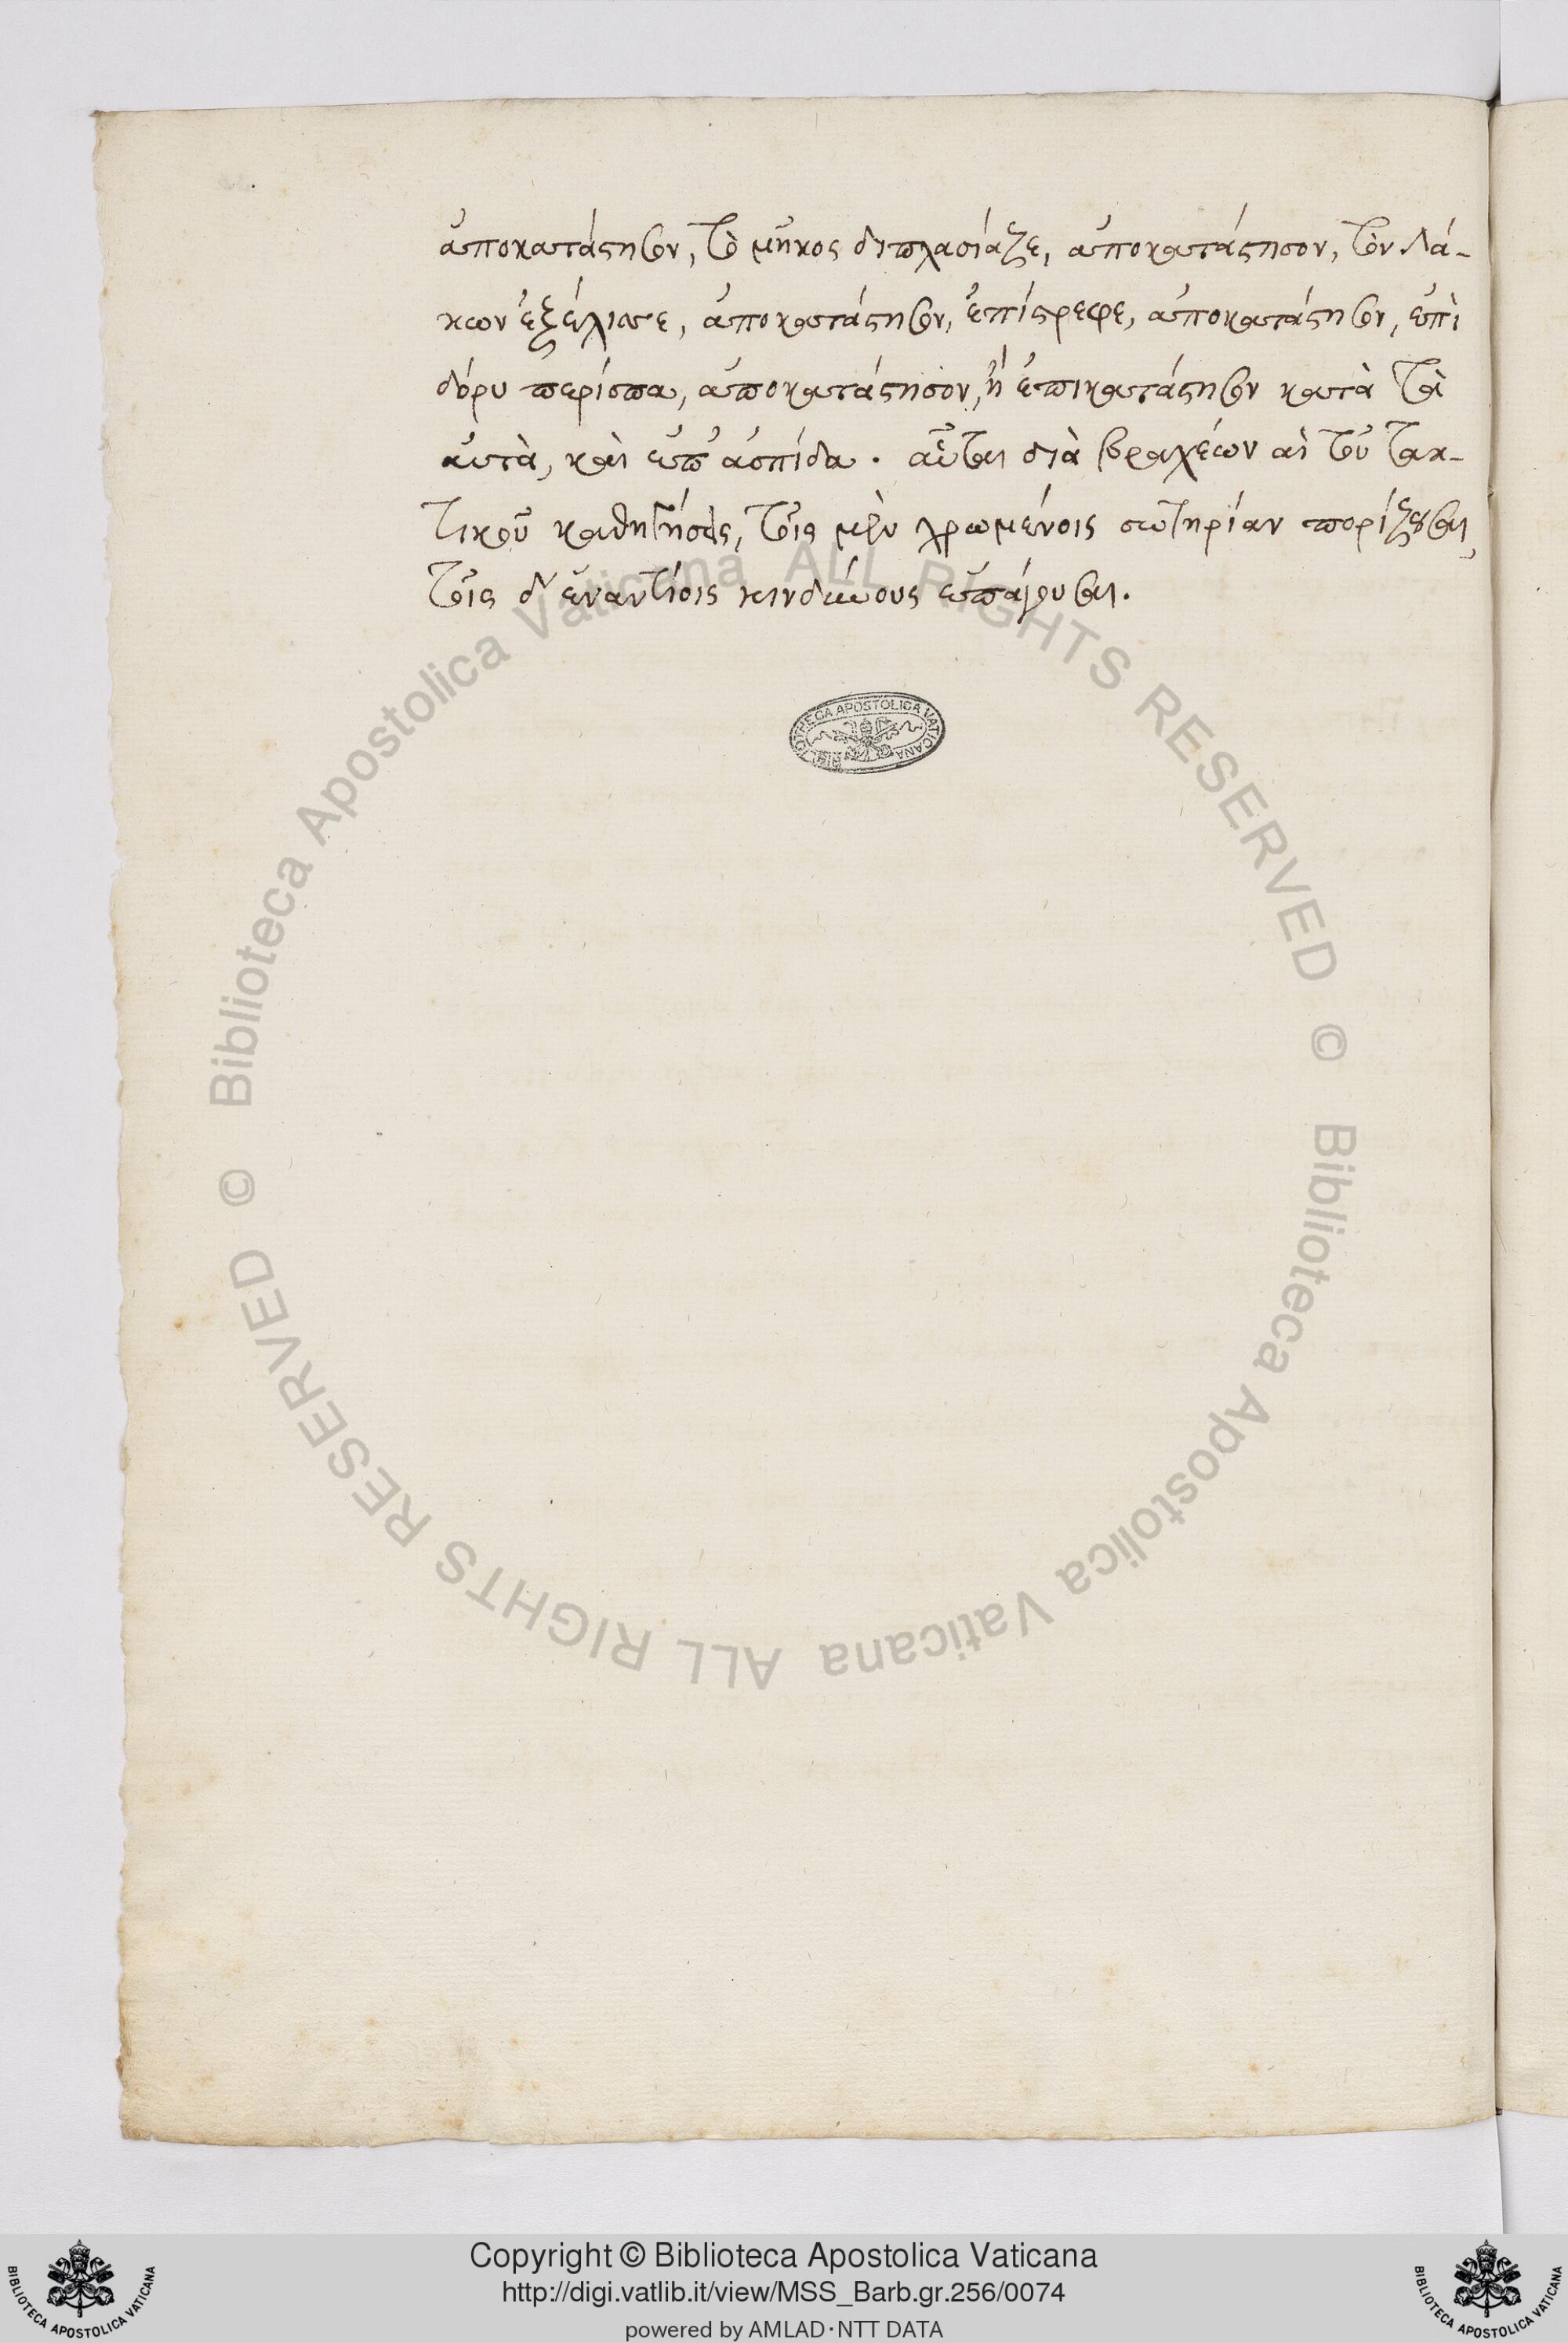 ἀποκατάστησον, τὸ μῆκος διπλασίαζε, ἀποκατάστησον, τὸν Λά-
κων ἐξέλισσε, ἀποκατάστησον, ἐπίστρεφε, ἀποκατάστησον, ἐπὶ
δόρυ περίσπα, ἀποκατάστησον, ἢ ἐπικατάστησον κατὰ τὰ
αὐτὰ, καὶ ἐπ' ἀσπίδα. αὗται διὰ βραχέων αἱ τοῦ τακ-
τικοῦ καθηγήσεις, τοῖς μὲν χρωμένοις σωτηρίαν πορίζουσαι,
τοῖς δ' ἐναντίοις κινδύνους ἐπάγουσαι.
BIBLIOTHECA APOSTOLICA VATICANA
© Biblioteca Apostolica Vaticana ALL RIGHTS RESERVED
© Biblioteca Apostolica Vaticana ALL RIGHTS RESERVED
Copyright © Biblioteca Apostolica Vaticana
http://digi.vatlib.it/view/MSS_Barb.gr.256/0074
powered by AMLAD·NTT DATA
BIBLIOTECA APOSTOLICA VATICANA
BIBLIOTECA APOSTOLICA VATICANA